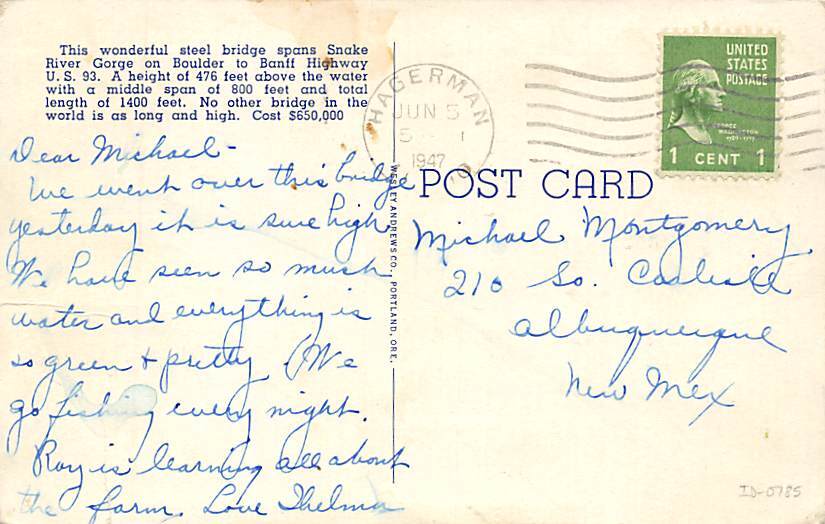 This wonderful steel bridge spans Snake
River Gorge on Boulder to Banff Highway
U. S. 93. A height of 476 feet above the water
with a middle span of 800 feet and total
length of 1400 feet. No other bridge in the
world is as long and high. Cost $650,000
Dear Michael -
We went over this bridge
yesterday it is sure high
We have seen so much
water and everything is
so green & pretty (We
go fishing every night.
Roy is learning all about
the farm. Love Thelma
WESLEY ANDREWS CO., PORTLAND, ORE.
HAGERMAN
JUN 5
1947
UNITED
STATES
POSTAGE
GEORGE
WASHINGTON
1 CENT 1
POST CARD
Michael Montgomery
210 So. Carlisle
Albuquerque
New Mex
ID-0785